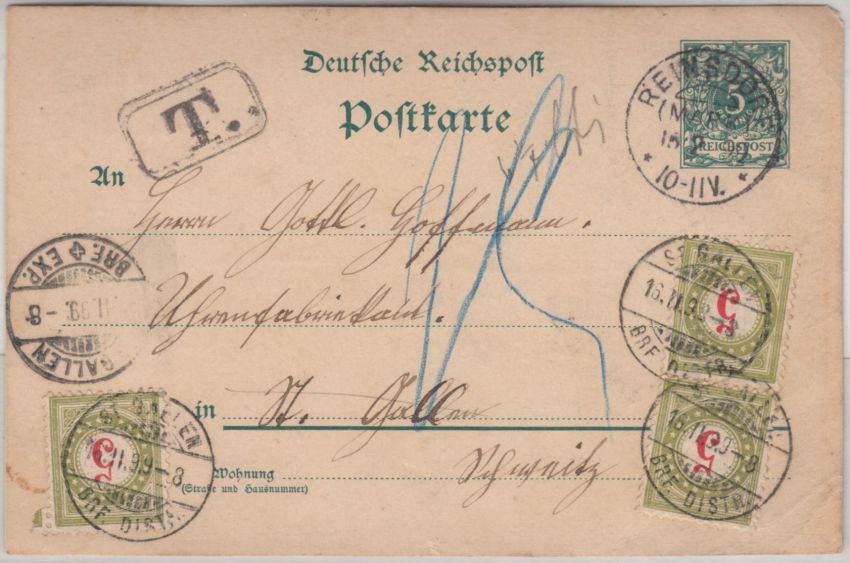 Deutsche Reichspost
Postkarte
T.
5
REICHSPOST
REINSDORF
(MARK)
* 10-11V. *
An
Herrn Gottl. Hoffmann.
Uhrenfabrikant.
in St. Gallen
Schweitz
Wohnung
(Straße und Hausnummer)
ST. GALLEN
16.II.99-8
BRF. DISTR.
5
ST. GALLEN
16.II.99-8
BRF. DISTR.
5
ST. GALLEN
16.II.99-8
BRF. DISTR.
5
BRF. EXP.
GALLEN
15